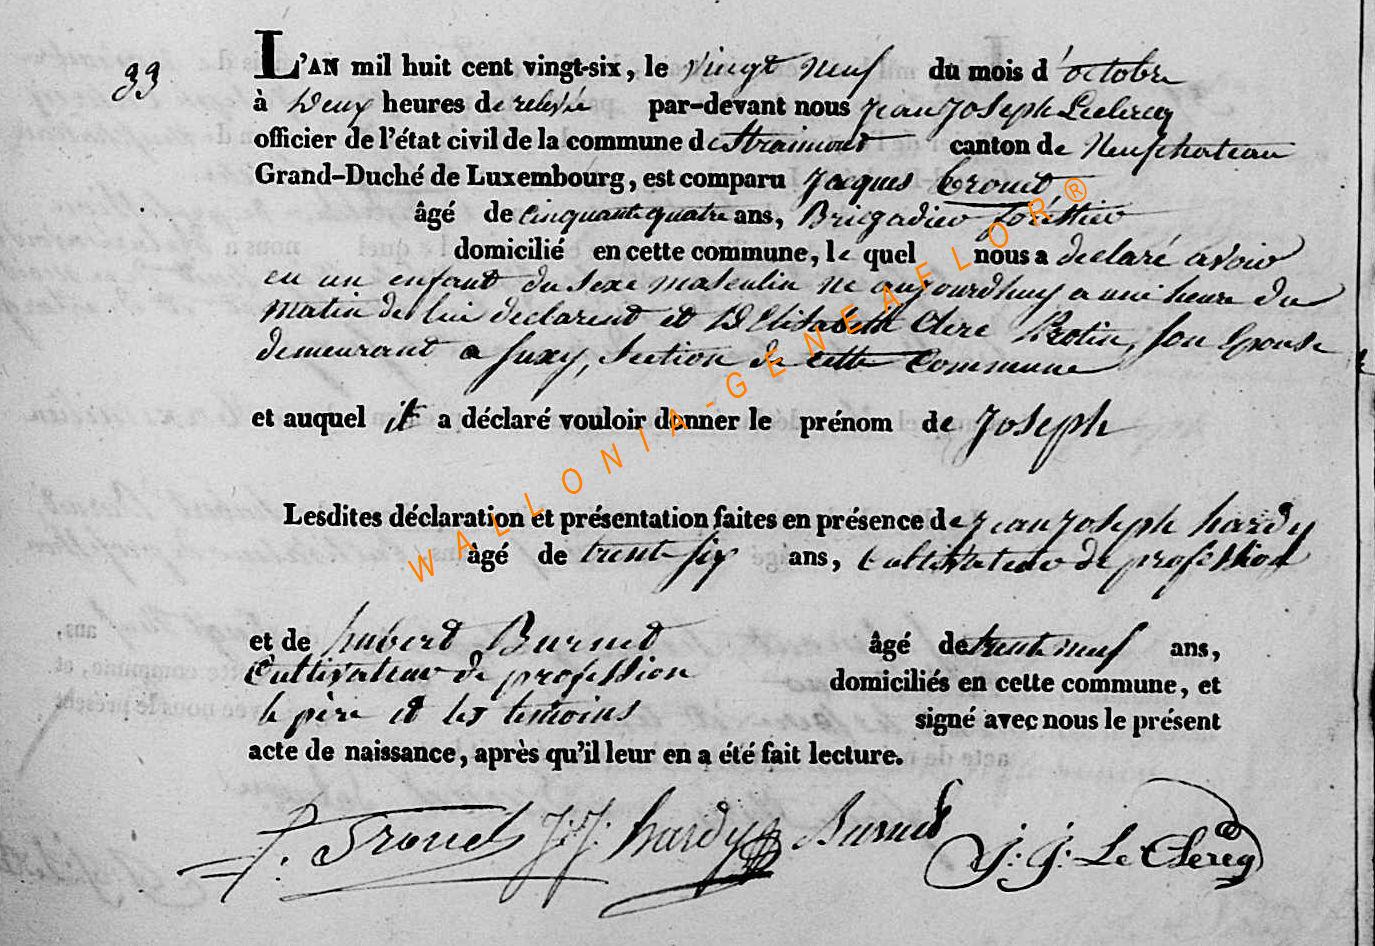 33
L'AN mil huit cent vingt-six, le vingt neuf du mois d'octobre
à Deux heures de relevée par-devant nous jean joseph Leclercq
officier de l'état civil de la commune de Straimont canton de Neufchateau
Grand-Duché de Luxembourg, est comparu Jacques
âgé de cinquante quatre ans, Brigadier forestier
domicilié en cette commune, le quel nous a declaré avoir
eu un enfant du sexe masculin né aujourdhuy a une heure du
matin de lui declarent et D'Elisabeth Clere son Epouse
demeurant a suxy, section de cette Commune
et auquel il a déclaré vouloir donner le prénom de Joseph
Lesdites déclaration et présentation faites en présence de jean joseph hardy
âgé de trente six ans, Cultivateur de profession
et de hubert Burnet âgé de trente neuf ans,
Cultivateur de profession domiciliés en cette commune, et
le père et les temoins signé avec nous le présent
acte de naissance, après qu'il leur en a été fait lecture.
J:J: hardy Burnet J: J: Le Clercq
WALLONIA-GENEAFLOR®